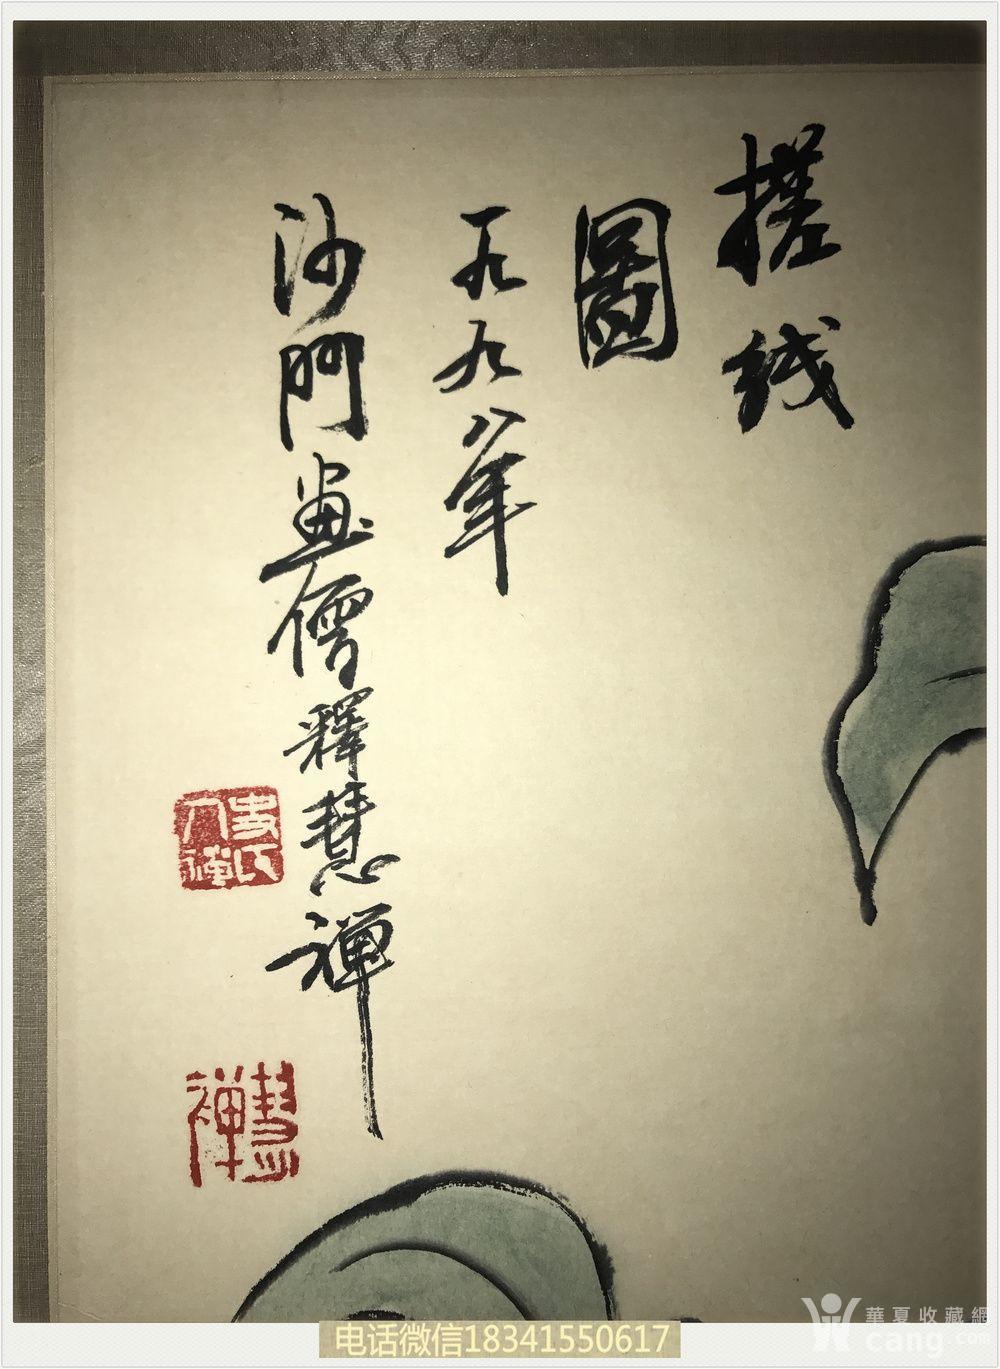 搓线
圖
一九九八年
沙門畫僧釋慧禅
慧禪
華夏收藏網
cang.com
电话微信18341550617